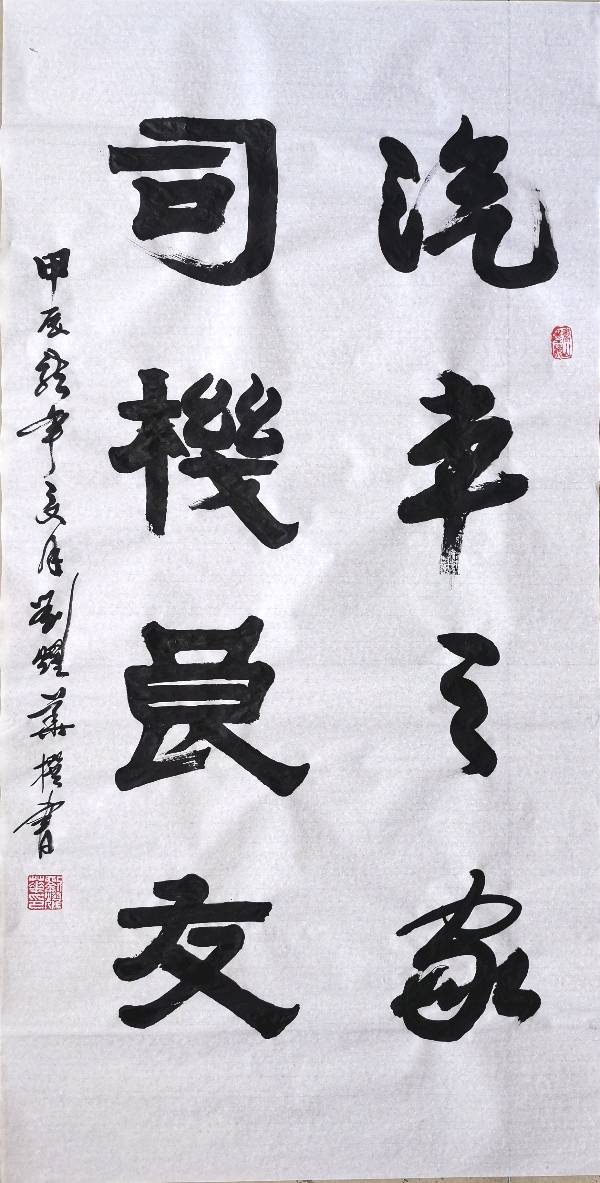 汽車之家
司機良友
甲辰龍年夏月劉耀華撰書